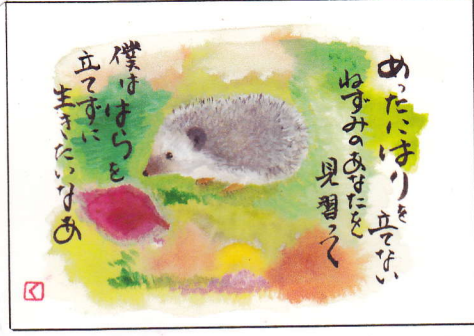 めったにはりを立てない
ねずみのあなたを
見習って
僕ははらを
立てずに
生きたいなあ
く